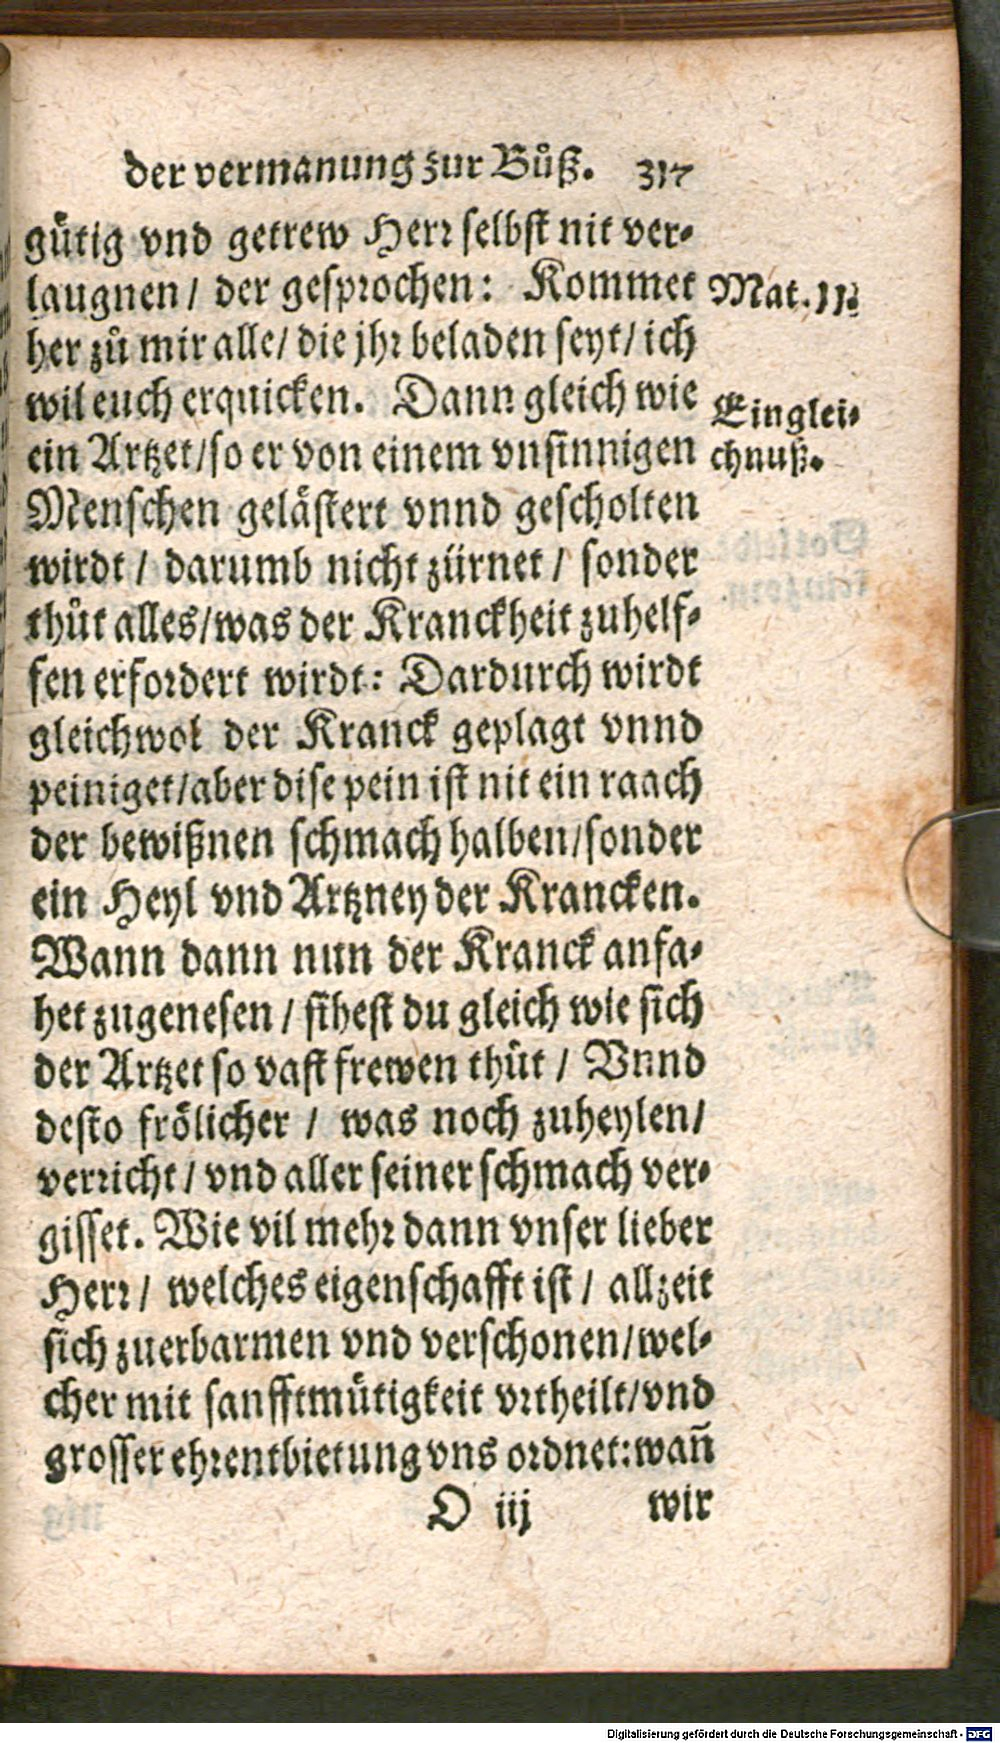 der vermanung zur Bůß. 317
gütig vnd getrew Herr selbst nit ver-
laugnen / der gesprochen: Kommet
Mat. 11.
her zů mir alle / die jhr beladen seyt / ich
wil euch erquicken. Dann gleich wie
Ein glei-
ein Artzet / so er von einem vnsinnigen
chnuß.
Menschen gelästert vnnd gescholten
wirdt / darumb nicht zürnet / sonder
thůt alles / was der Kranckheit zuhelf-
fen erfordert wirdt: Dardurch wirdt
gleichwol der Kranck geplagt vnnd
peiniget / aber dise pein ist nit ein raach
der bewißnen schmach halben / sonder
ein Heyl vnd Artzney der Krancken.
Wann dann nun der Kranck anfa-
het zugenesen / sihest du gleich wie sich
der Artzet so vast frewen thůt / Vnnd
desto frölicher / was noch zuheylen /
verricht / vnd aller seiner schmach ver-
gisset. Wie vil mehr dann vnser lieber
Herr / welches eigenschafft ist / allzeit
sich zuerbarmen vnd verschonen / wel-
cher mit sanfftmütigkeit vrtheilt / vnd
grosser ehrentbietung vns ordnet: wañ
O iij wir
Digitalisierung gefördert durch die Deutsche Forschungsgemeinschaft - DFG